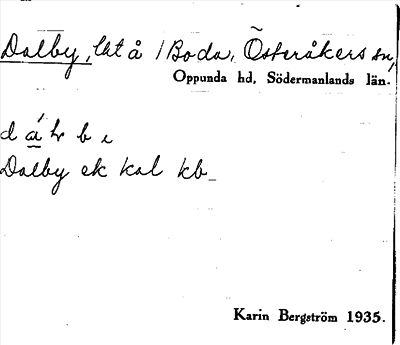 Dalby, lht å /Boda, Österåkers sn,
Oppunda hd, Södermanlands län.
Dalby ek kal kb
Karin Bergström 1935.